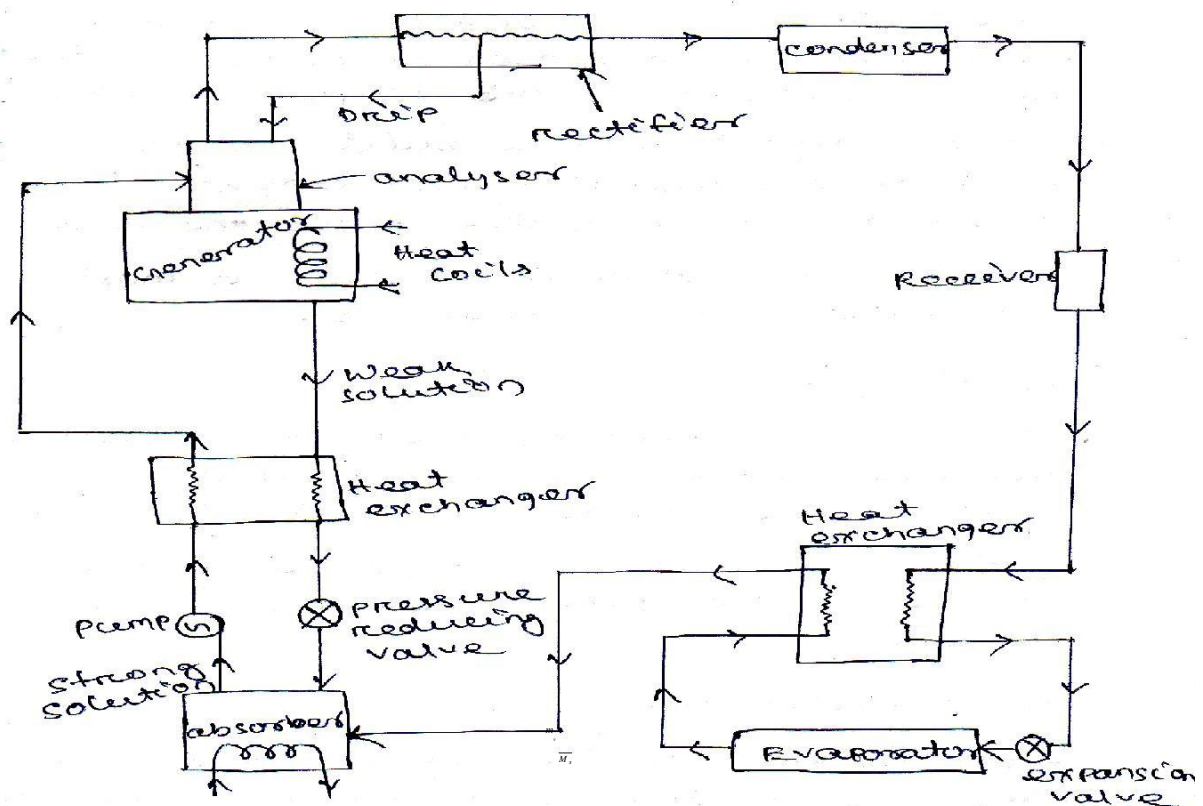 condenser
Drip
rectifier
analyser
Generator
Heat
coils
Receiver
Weak
solution
Heat
exchanger
Heat
exchanger
Pump
pressure
reducing
valve
strong
solution
absorber
M,
Evaporator
expansion
valve